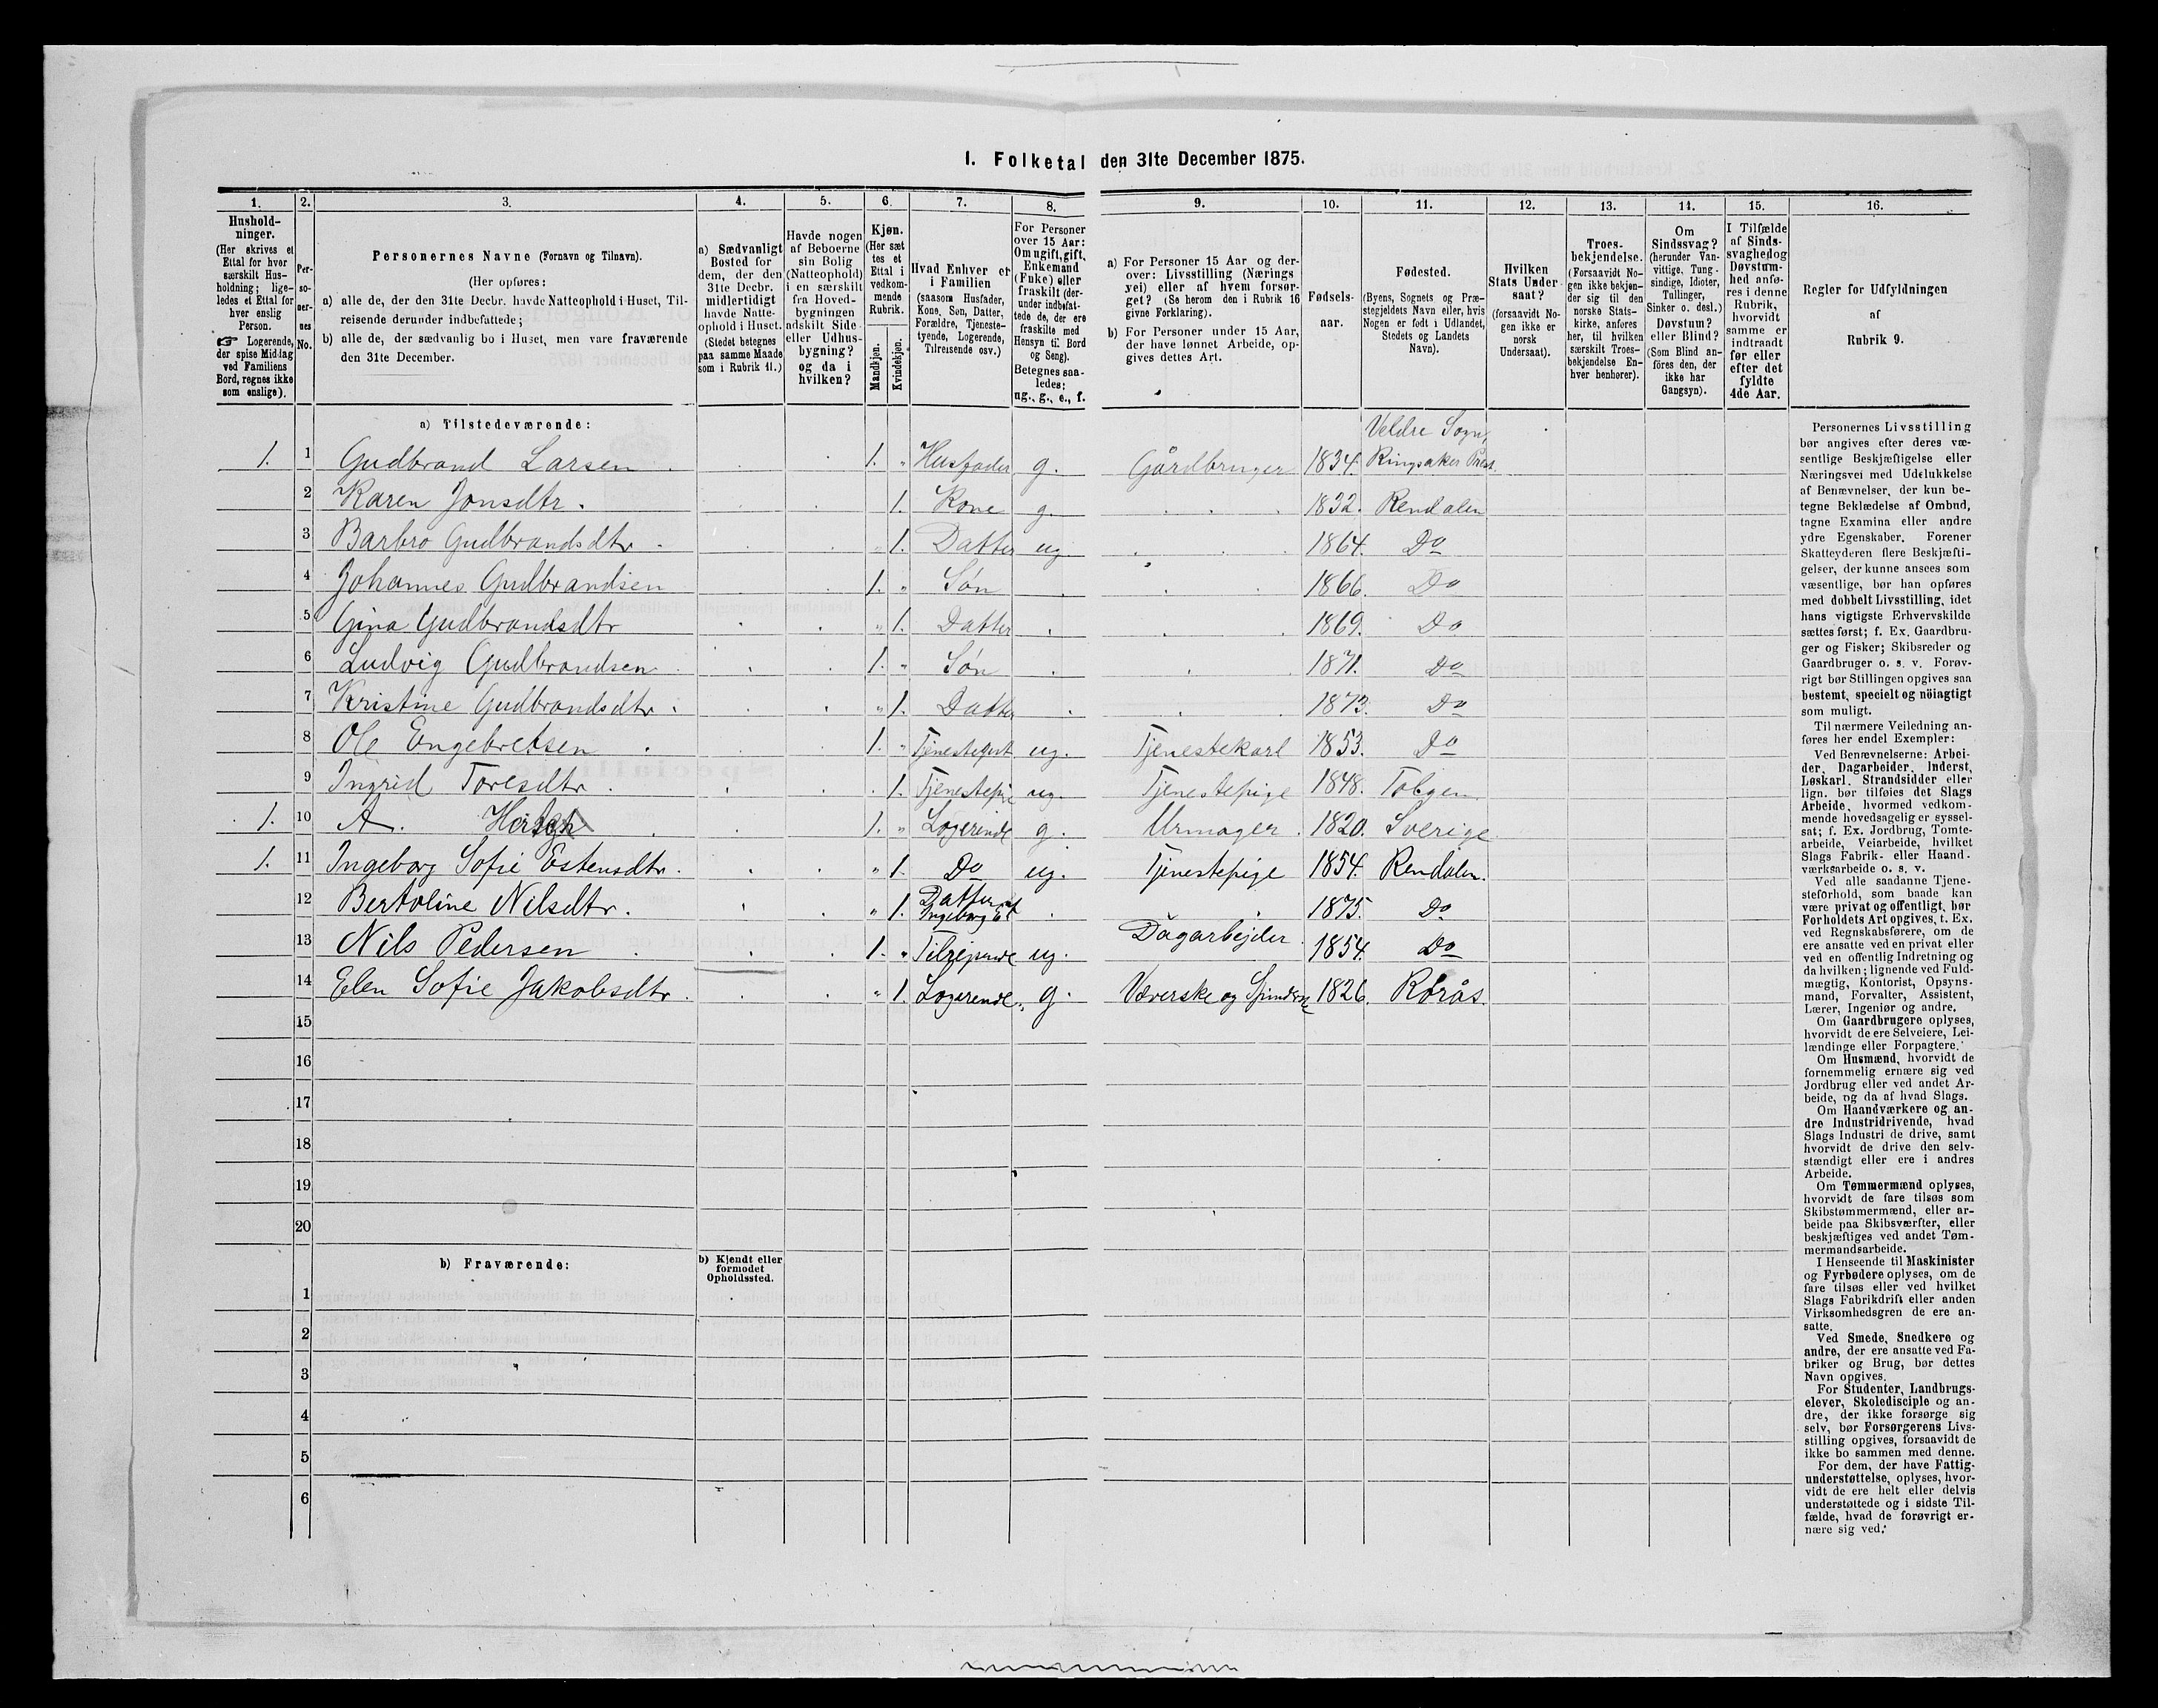 1. Folketal den 31te December 1875.
1. 2. 3. 4. 5. 6. 7. 8. 9. 10. 11. 12. 13. 14. 15. 16.
Hushold-
ninger.
(Her skrives et
Ettal for hver
særskilt Hus-
holdning; lige-
ledes et Ettal for
hver enslig
Person.
☞ Logerende,
der spise Middag
ved Familiens
Bord, regnes ikke
som enslige).
Per-
so-
ner-
nes
No.
Personernes Navne (Fornavn og Tilnavn).
(Her opføres:
a) alle de, der den 31te Decbr. havde Natteophold i Huset, Til-
reisende derunder indbefattede;
b) alle de, der sædvanlig bo i Huset, men vare fraværende
den 31te December.
a) Sædvanligt
Bosted for
dem, der den
31te Decbr.
midlertidigt
havde Natte-
ophold i Huset.
(Stedet betegnes
paa samme Maade
som i Rubrik 11.)
Havde nogen
af Beboerne
sin Bolig
(Natteophold)
i en særskilt
fra Hoved-
bygningen
adskilt Side-
eller Udhus-
bygning?
og da i
hvilken?
Kjøn.
(Her sæt
tes et
Ettal i
vedkom-
mende
Rubrik.
Mandkjøn.
Kvindekjøn.
Hvad Enhver er
i Familien
(saasom Husfader,
Kone, Søn, Datter,
Forældre, Tjeneste-
tyende, Logerende,
Tilreisende osv.)
For Personer
over 15 Aar:
Om ugift, gift,
Enkemand
(Enke) eller
fraskilt (der-
under indbefat-
tede de, der ere
fraskilte med
Hensyn til Bord
og Seng).
Betegnes saa-
ledes:
ug., g., e., f.
a) For Personer 15 Aar og der-
over: Livsstilling (Nærings
vei) eller af hvem forsør-
get? (Se herom den i Rubrik 16
givne Forklaring).
b) For Personer under 15 Aar,
der have lønnet Arbeide, op-
gives dettes Art.
Fødsels-
aar.
Fødested.
(Byens, Sognets og Præ-
stegjeldets Navn eller, hvis
Nogen er født i Udlandet,
Stedets og Landets
Navn).
Hvilken
Stats Under
saat?
(forsaavidt No-
gen ikke er
norsk
Undersaat).
Troes-
bekjendelse.
(Forsaavidt No-
gen ikke bekjen-
der sig til den
norske Stats-
kirke, anføres
her, til hvilken
særskilt Troes-
bekjendelse En-
hver henhører).
Om
Sindssvag?
(herunder Van-
vittige, Tung-
sindige, Idioter,
Tullinger,
Sinker o. desl.)
Døvstum?
eller Blind?
(Som Blind an-
føres den, der
ikke har
Gangsyn).
I Tilfælde
af Sinds-
svaghed og
Døvstum-
hed anfø-
res i denne
Rubrik,
hvorvidt
samme er
indtraadt
før eller
efter det
fyldte
4de Aar.
Regler for Udfyldningen
af
Rubrik 9.
a) Tilstedeværende:
Veldre Sogn,
1. 1 Gudbrand Larsen 1. " Husfader g. Gårdbruger 1834. Ringsaker Prest
2 Karen Jonsdtr. 1. Kone g. 1832. Rendalen
3 Barbro Gudbrandsdtr. " 1. Datter ug. 1864. Do
4 Johannes Gudbrandsen 1. " Søn 1866. Do
5 Gina Gudbrandsdtr " 1. Datter 1869. Do
6 Ludvig Gudbrandsen 1. " Søn 1871. Do
7 Kristine Gudbrandsdtr. " 1. Datter 1873. Do
8 Ole Engebretsen 1. " ug. Tjenestekarl 1853. Do
9 Ingrid Toresdtr. 1. Tjenestepie ug. Tjenestepige 1848. Tolgen
1. 10 A. 1. " Logerende g. Urmager 1820. Sverige
1. 11 Ingeborg Sofie Estensdtr. " 1. Do ug. Tjenestepige 1854. Rendalen.
12 Bertoline Nilsdtr. " 1. Datter af Ingeborg 1875. Do
13 Nils Pedersen 1. " Tilrejsende ug. Dagarbejder 1854. Do
14 Elen Sofie Jakobsdtr. " 1. Logerende. g. Væverske og 1826. Rörås.
15
16
17
18
19
20
b) Fraværende:
b) Kjendt eller
formodet
Opholdssted.
1
2
3
4
5
6
Personernes Livsstilling
bør angives efter deres væ-
sentlige Beskjæftigelse eller
Næringsvei med Udelukkelse
af Benævnelser, der kun be-
tegne Beklædelse af Ombud,
tagne Examina eller andre
ydre Egenskaber. Forener
Skatteyderen flere Beskjæfti-
gelser, der kunne ansees som
væsentlige, bør han opføres
med dobbelt Livsstilling, idet
hans vigtigste Erhvervskilde
sættes først; f. Ex. Gaardbru-
ger og Fisker; Skibsreder og
Gaardbruger o. s. v. Forøv-
rigt bør Stillingen opgives saa
bestemt, specielt og nöiagtigt
som muligt.
Til nærmere Veiledning an-
føres her endel Exempler:
Ved Benævnelserne: Arbei-
der, Dagarbeider, Inderst,
Løskarl, Strandsidder eller
lign. bør tilføies det Slags
Arbeide, hvormed vedkom-
mende hovedsagelig er syssel-
sat; f. Ex. Jordbrug, Tomte-
arbeide, Veiarbeide, hvilket
Slags Fabrik- eller Haand-
værksarbeide o. s. v.
Ved alle saadanne Tjene-
steforhold, som baade kan
være privat og offentligt, bør
Forholdets Art opgives, t. Ex.
ved Regnskabsførere, om de
ere ansatte ved en privat eller
ved en offentlig Indretning og
da hvilken; lignende ved Fuld-
mægtig, Kontorist, Opsyns-
mand, Forvalter, Assistent,
Lærer, Ingeniør og andre.
Om Gaardbrugere oplyses,
hvorvidt de ere Selveiere, Lei-
lændinge eller Forpagtere.
Om Husmænd, hvorvidt de
fornemmelig ernære sig ved
Jordbrug eller ved andet Ar-
beide, og da af hvad Slags.
Om Haandværkere og an-
dre Industridrivende, hvad
Slags Industri de drive, samt
hvorvidt de drive den selv-
stændigt eller ere i andres
Arbeide.
Om Tømmermænd oplyses,
hvorvidt de fare tilsøs som
Skibstømmermænd, eller ar-
beide paa Skibsværfter, eller
beskjæftiges ved andet Tøm-
mermandsarbeide.
I Henseende til Maskinister
og Fyrbødere oplyses, om de
fare tilsøs eller ved hvilket
Slags Fabrikdrift eller anden
Virksomhedsgren de ere an-
satte.
Ved Smede, Snedkere og
andre, der ere ansatte ved Fa-
briker og Brug, bør dettes
Navn opgives.
For Studenter, Landbrugs-
elever, Skoledisciple og an-
dre, der ikke forsørge sig
selv, bør Forsørgerens Livs-
stilling opgives, forsaavidt de
ikke bo sammen med denne.
For dem, der have Fattig-
understøttelse, oplyses, hvor-
vidt de ere helt eller delvis
understøttede og i sidste Til-
fælde, hvad de forøvrigt er-
nære sig ved.